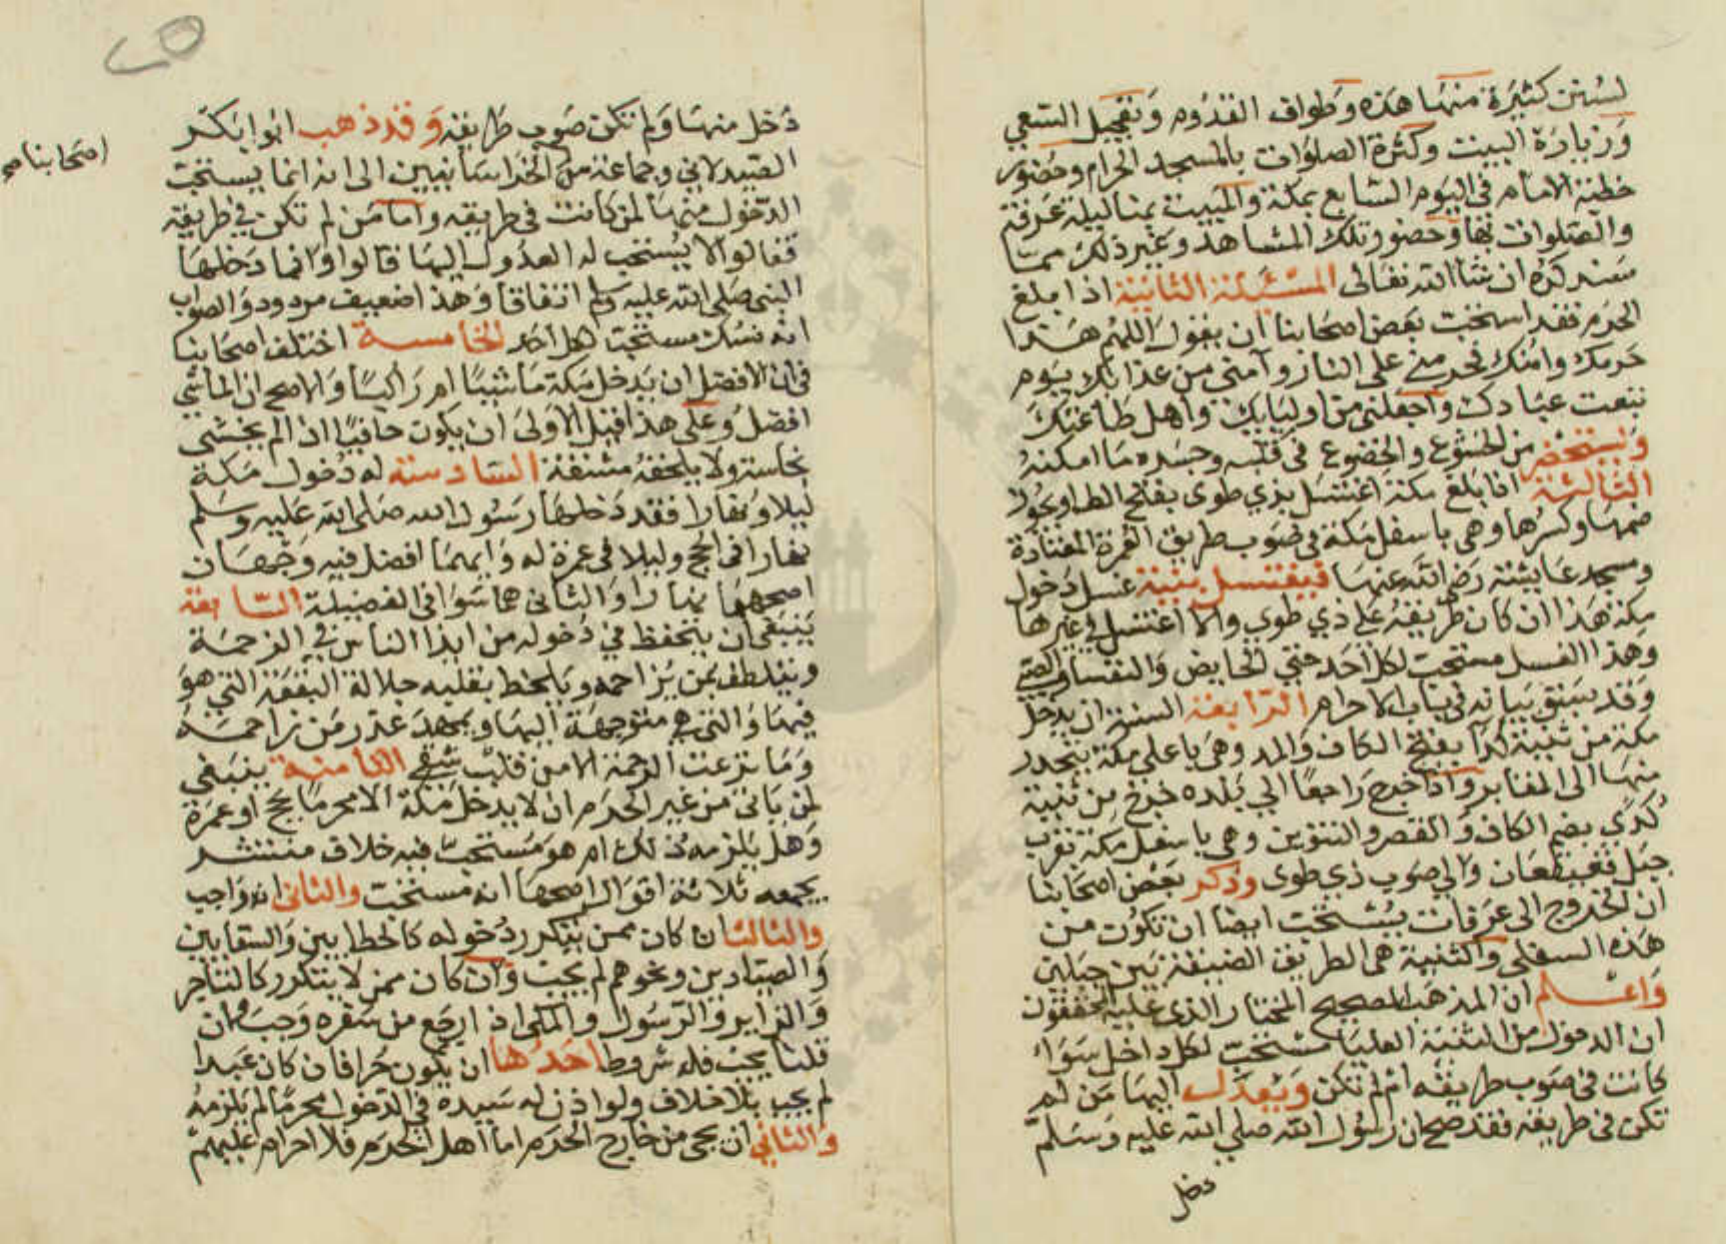 لسنن كثيرة منها هذه وطواف القدوم وتعجيل السعي
وزيارة البيت وكثرة الصلوات بالمسجد الحرام وحضور
خطبة الامام في اليوم السابع بمكة والمبيت بمنا ليلة عرفة
والصلوات بها وحضور تلك المشاهد وغير ذلك مما
سنذكره ان شا الله تعالى المسئلة الثانية اذا بلغ
الحرم فقد استحب بعض اصحابنا ان يقول اللهم هذا
حرمك وامنك فحرمني على النار وآمني من عذابك يوم
تبعث عبادك واجعلني من اوليايك واهل طاعتك
ويستحضر من الخشوع والخضوع في قلبه وجسده ما امكنه
الثالثة اذا بلغ مكة اغتسل بذي طوى بفتح الطا ويجوز
ضمها وكسرها وهي باسفل مكة في صوب طريق العمرة المعتادة
ومسجد عايشة رضي الله عنها فيغتسل بنية غسل دخول
مكة هذا ان كان طريقه على ذي طوى والا اغتسل في غيرها
وهذا الغسل مستحب لكل احد حتي الحايض والنفسا والصبي
وقد سبق بيانه في باب الاحرام الرابعة السنة ان يدخل
مكة من ثنية كدآ بفتح الكاف والمد وهي باعلي مكة ينحدر
منها الى المقابر واذا خرج راجعا الي بلده خرج من ثنية
كدي بضم الكاف والقصر والتنوين وهي باسفل مكة بقرب
جبل قعيقعان والي صوب ذي طوى وذكر بعض اصحابنا
ان الخروج الى عرفات يستحب ايضا ان تكون من
هذه السفلى والثنية هى الطريق الضيقة بين جبلين
واعلم ان المذهب الصحيح المختار الذي عليه المحققون
ان الدخول من الثنية العليا مستحب لكل داخل سوآء
كانت في صوب طريقه ام لم تكن ويعدل اليها من لم
تكن في طريقه فقد صح ان رسول الله صلي الله عليه وسلم
دخل
دخل منها ولم تكن صوب طريقه وقد ذهب ابوا بكر
الصيدلاني وجماعة من الخراسانيين الى انه انما يستحب
اصحابنا صح
الدخول منها لمن كانت في طريقه واما من لم تكن في طريقه
فقالوا لا يستحب له العدول اليها قالوا وانما دخلها
النبي صلى الله عليه وسلم اتفاقا وهذا ضعيف مردود والصواب
انه نسك مستحب لكل احد الخامسة اختلف اصحابنا
في ان الافضل ان يدخل مكة ماشيا ام راكبا والاصح ان الماشي
افضل وعلى هذا قيل الاولى ان يكون حافيا اذا لم يخشى
نجاسة ولا يلحقه مشقة السادسة له دخول مكة
ليلا ونهارا فقد دخلها رسول الله صلى الله عليه وسلم
نهارا في الحج وليلا في عمرة له وايهما افضل فيه وجهان
اصحهما نهارا والثاني هما سوا في الفضيلة السابعة
ينبغي ان يتحفظ في دخوله من ايذا الناس في الزحمة
ويتلطف بمن يزاحمه ويالحظ بقلبه جلالة البقعة التي هو
فيها والتي هي متوجهة اليها ويمهد عذر من زاحمه
وما نزعت الرحمة الا من قلب شقي الثامنة ينبغي
لمن ياتي من غير الحرم ان لا يدخل مكة الا محرما بحج او عمرة
وهل يلزمه ذلك ام هو مستحب فيه خلاف منتشر
يجمعه ثلاثة اقوال اصحها انه مستحب والثاني انه واجب
والثالث ان كان ممن يتكرر دخوله كالحطابين والسقايين
والصيادين ونحوهم لم يجب وان كان ممن لا يتكرر كالتاجر
والزاير والرسول والمكى اذا رجع من سفره وجب فان
قلنا يجب فله شروط احدها ان يكون حرا فان كان عبدا
لم يجب بلا خلاف ولو اذن له سيده في الدخول محرما لم يلزمه
والثاني ان يجى من خارج الحرم اما اهل الحرم فلا احرام عليهم